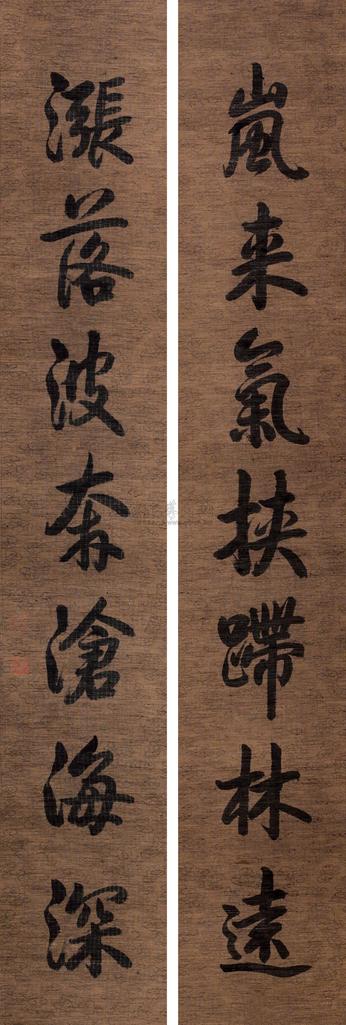 嵐来氣挾蹛林遠
漲落波奔滄海深